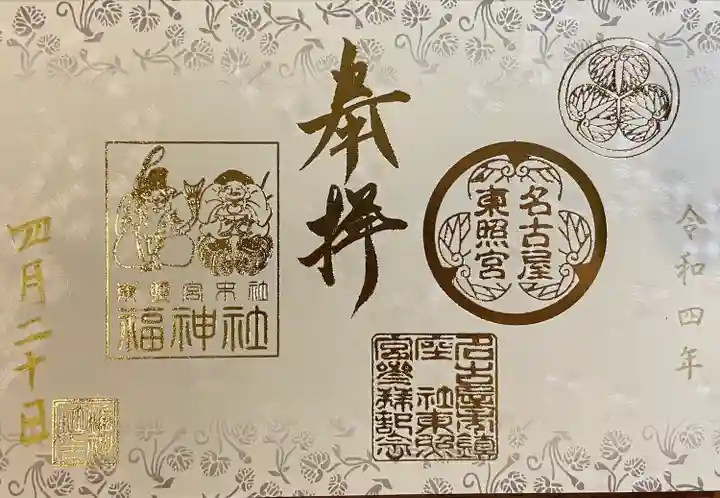 令和四年
名古屋
東照宮
奉拝
名古屋市鎮
座 社東照
宮参拝記念
東照宮末社
福神社
四月二十日